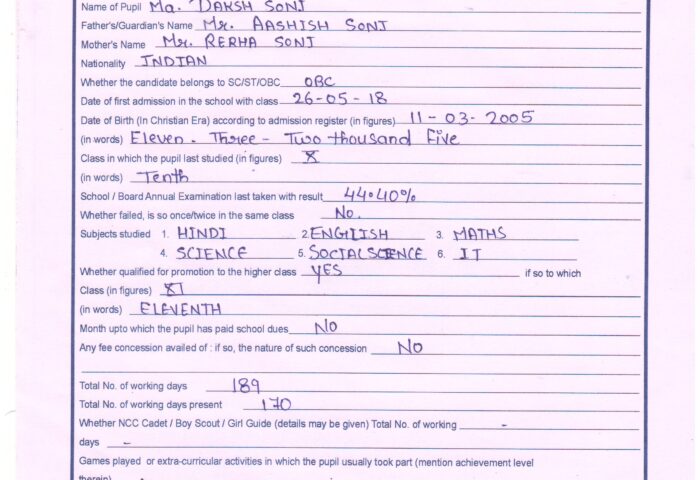 Name of Pupil Ma. DAKSH SONI
Father's/Guardian's Name Mr. AASHISH SONI
Mother's Name Mr. REKHA SONI
Nationality INDIAN
Whether the candidate belongs to SC/ST/OBC OBC
Date of first admission in the school with class 26-05-18
Date of Birth (In Christian Era) according to admission register (in figures) 11-03-2005
(in words) Eleven. Three - Two thousand Five
Class in which the pupil last studied (in figures) X
(in words) Tenth
School / Board Annual Examination last taken with result 44.40%
Whether failed, is so once/twice in the same class No.
Subjects studied 1. HINDI 2 ENGLISH 3. MATHS
4. SCIENCE 5. SOCIAL SCIENCE 6. IT
Whether qualified for promotion to the higher class YES if so to which
Class (in figures) XI
(in words) ELEVENTH
Month upto which the pupil has paid school dues NO
Any fee concession availed of : if so, the nature of such concession NO
Total No. of working days 189
Total No. of working days present 170
Whether NCC Cadet / Boy Scout / Girl Guide (details may be given) Total No. of working -
days -
Games played or extra-curricular activities in which the pupil usually took part (mention achievement level
therein)